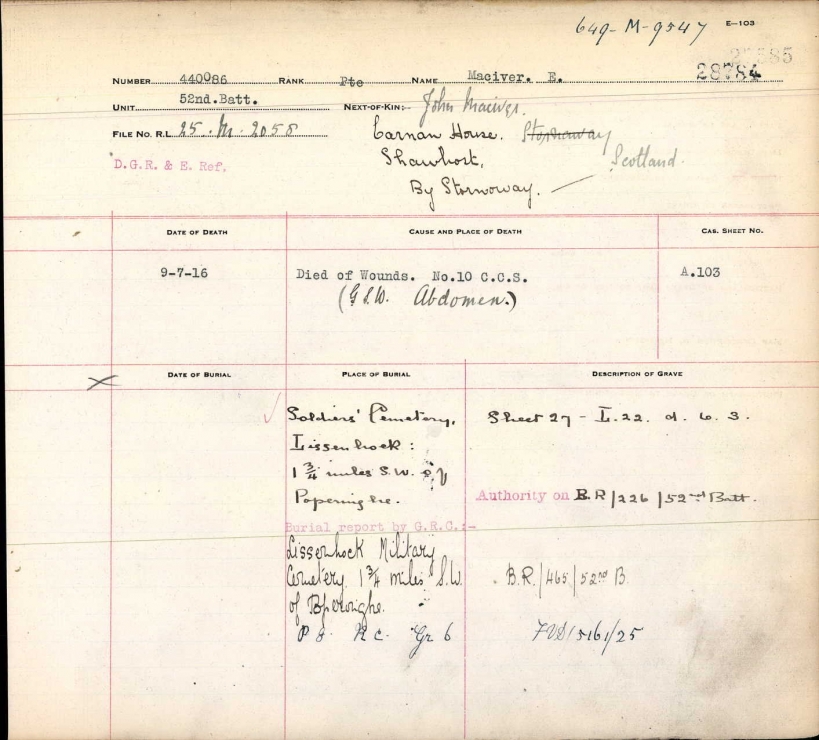 649-M-9547 E-103
28784
NUMBER 440086 RANK Pte NAME Maciver. E.
UNIT 52nd.Batt. NEXT-OF-KIN:- John Maciver.
FILE NO. R.L. 25. M. 2058 Carnan House. Stornoway
D.G.R. & E. Ref. Shawbost, Scotland.
By Stornoway.
DATE OF DEATH CAUSE AND PLACE OF DEATH CAS. SHEET NO.
9-7-16 Died of Wounds. No.10 C.C.S. A.103
(G.S.W. Abdomen.)
DATE OF BURIAL PLACE OF BURIAL DESCRIPTION OF GRAVE
Soldiers' Cemetery, Sheet 27 - L. 22. d. 6. 3.
Lissenhoek:
1 3/4 miles S.W. of
Poperinghe. Authority on B.R/226/52nd Batt.
Burial report by G.R.C.:-
Lissenhock Military
Cemetery 1 3/4 miles S.W. B.R./465/52nd B.
of Poperinghe.
Gr 6 5161/25